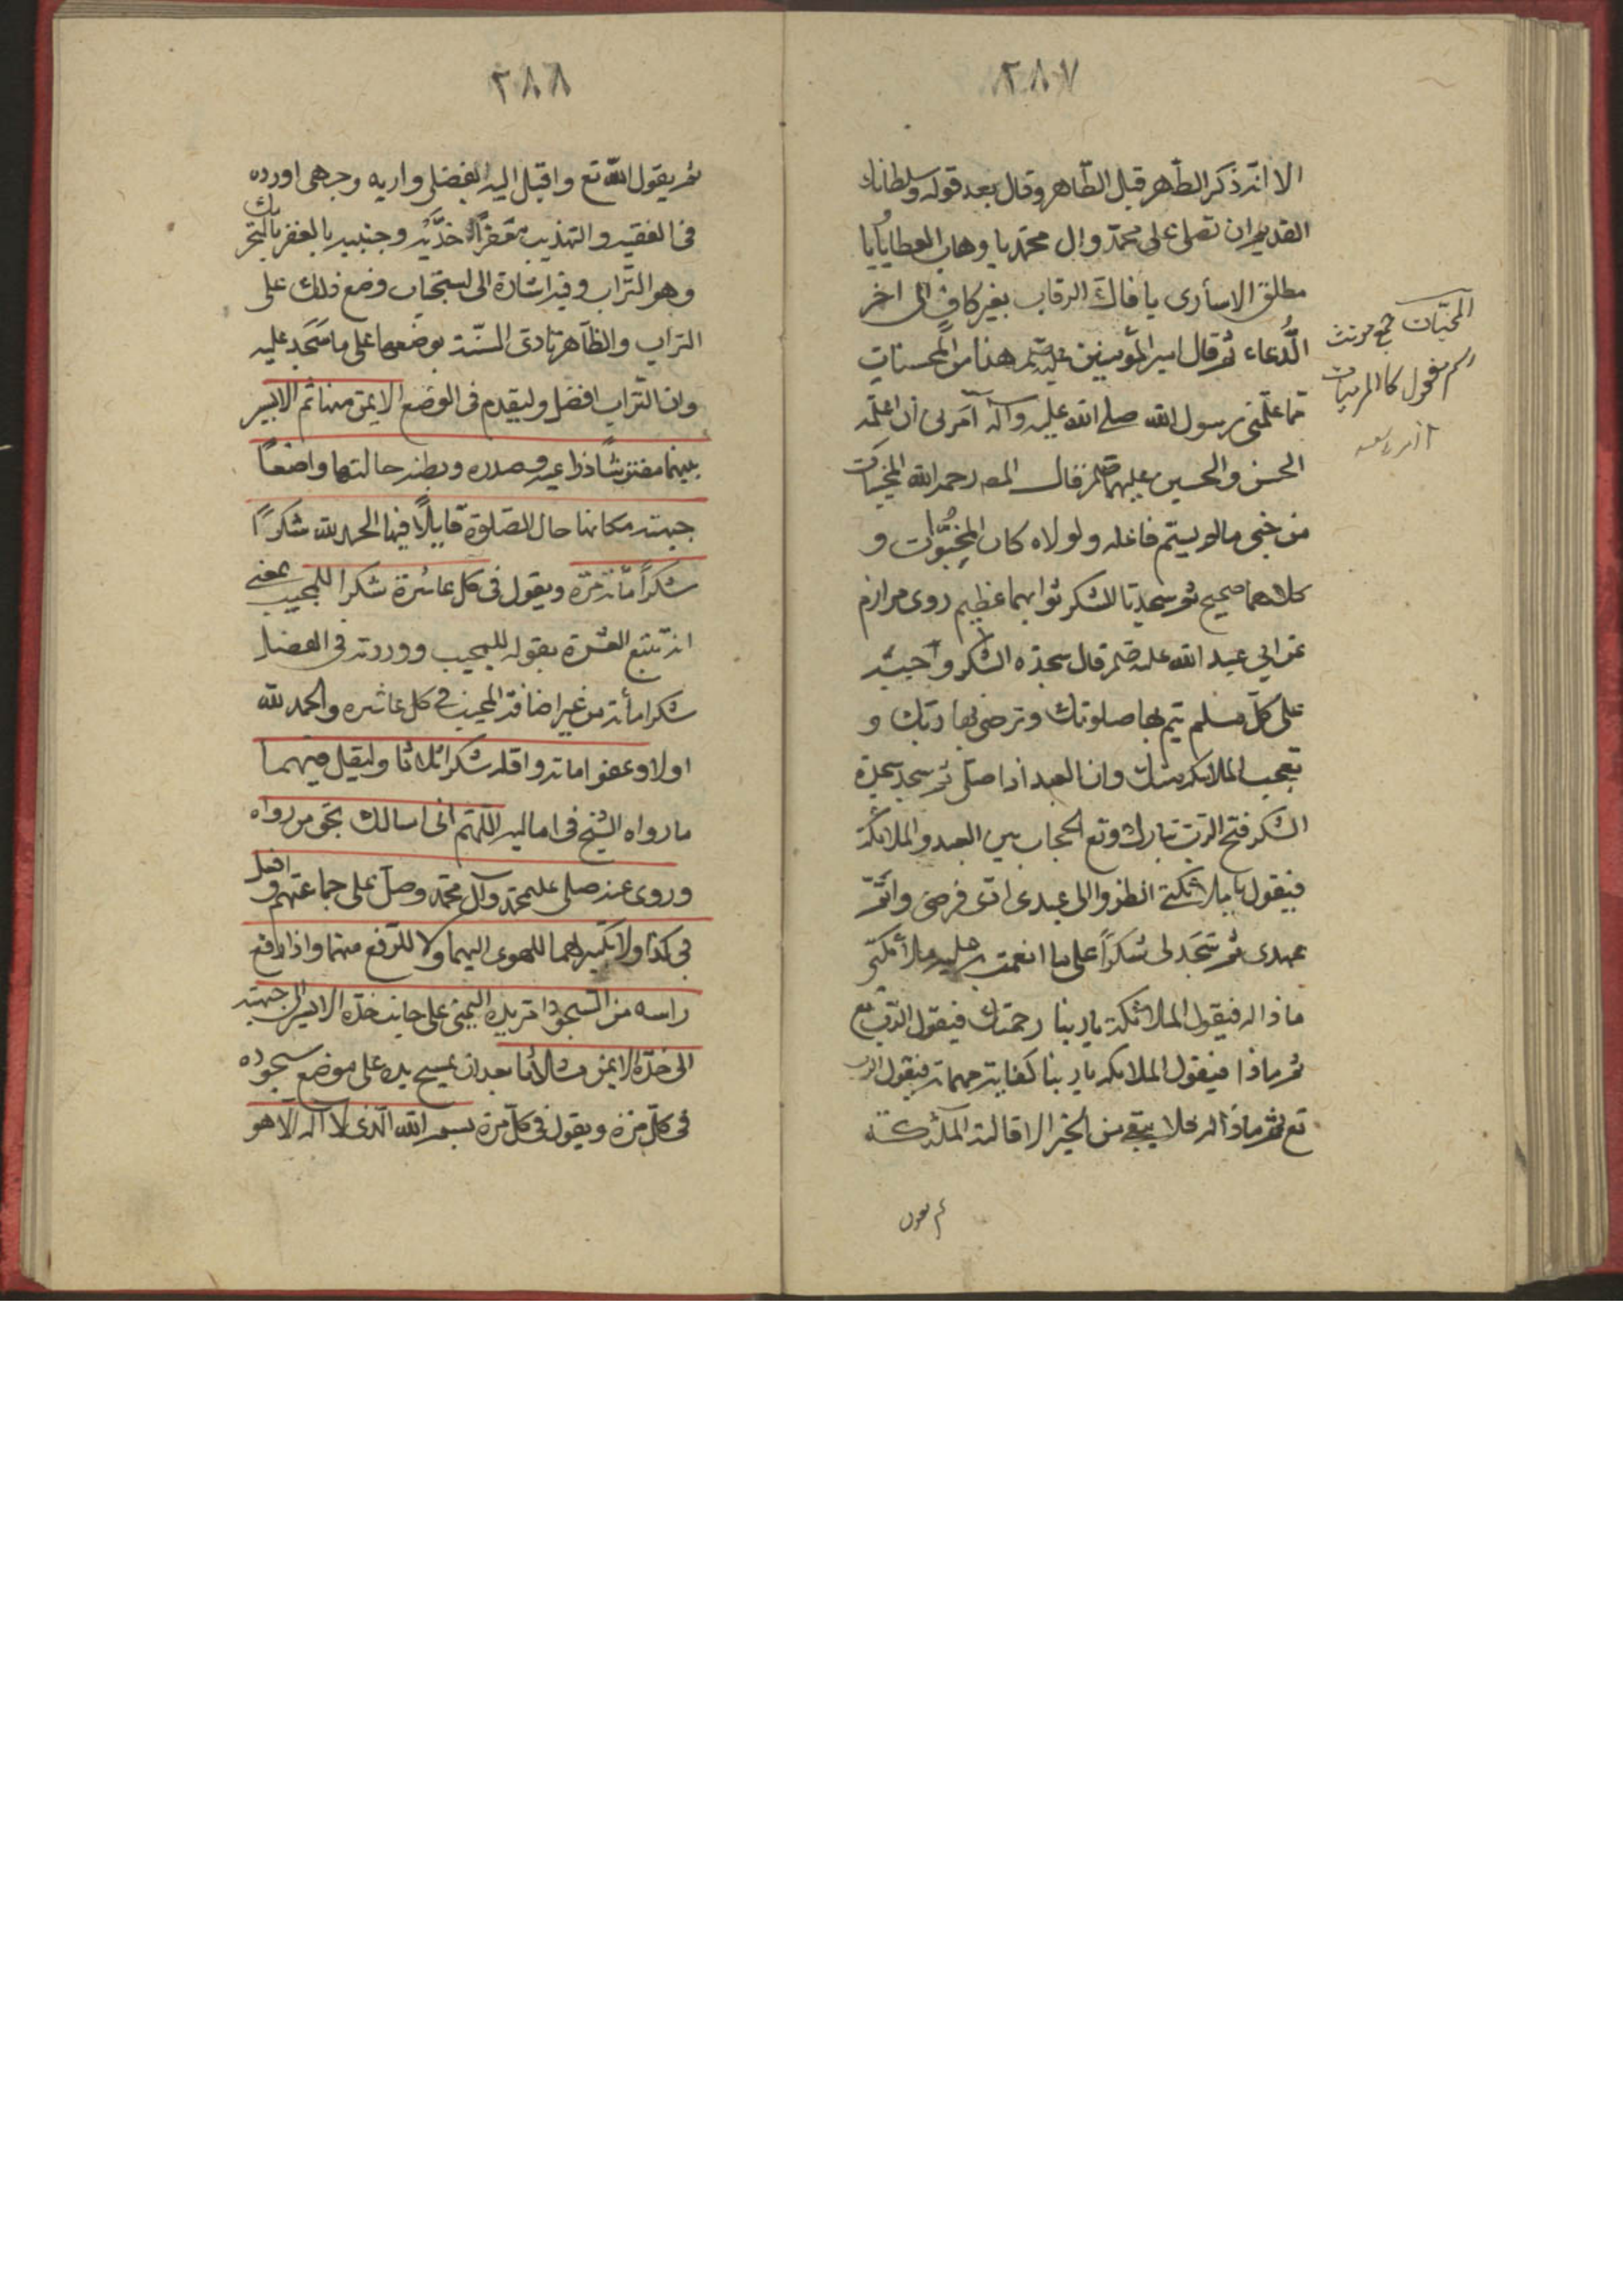 ٢٨٧
الا انه ذكر الطهر قبل الطاهر وقال بعد قوله وسلطانك
القديم ان تصلى على محمد وال محمد يا وهاب العطايا يا
مطلق الاسارى يا فاك الرقاب بغير كاف الى اخر
الدعاء ثم قال امير المؤمنين هذا من
مما علمنى رسول الله صلى الله عليه وآله امرنى ان اعلمه
الحسن والحسين عليهما قال المصـ رحمه الله المخبيات
من خبى مالم يسم فاعله ولولاه كان المخبوات و
كلاهما صحيح ثم سجدتا الشكر ثوابهما عظيم روى مرازم
عن ابي عبد الله قال سجدة الشكر واجبة
على كل مسلم يتم بها صلوتك وترضى بها ربك و
تعجب الملائكة منك وان العبد اذا صلى ثم سجد سجدة
الشكر فتح الرب تبارك وتع الحجاب بين العبد والملائكة
فيقول يا ملائكتى انظروا الى عبدى ادى فرضى واتم
عهدى ثم سجد لى شكراً على ما انعمت به عليه ملائكتى
ماذا له فيقول الملائكة يا ربنا رحمتك فيقول الرب تع
ثم ماذا فيقول الملائكة يا ربنا كفاية مهماته فيقول الرب
تع ثم ماذا له فلا يبقى من الخير الا قالته الملئكة
ثم يقول
المخبيات جمع مونث
اسم مفعول كالمرميات
٢٨٨
ثم يقول الله تع واقبل اليه بفضلى واريه وجهى اورده
فى الفقيه والتهذيب معفراً خديه وجنبيه بالعفر بالتحريك
وهو التراب وفيه اشارة الى استحباب وضع ذلك على
التراب والظاهر تادى السنة بوضعها على ما سجد عليه
وان التراب افضل وليقدم فى الوضع الايمن منها ثم الايسر
بينهما مفترشاً ذراعيه وصدره وبطنه حالتهما واضعاً
جبهته مكانها حال الصلوة قايلاً فيها الحمد لله شكراً
شكراً مأئة مرة ويقول فى كل عاشرة شكرا للمجيب بمعنى
انه يتبع العشرة بقوله للمجيب ووردته فى الفضل
شكرا مأئة من غير اضافة المجيب فى كل عاشره والحمد لله
اولا وعفوا مائة واقله شكرا ثلاثا وليقل فيهما
ما رواه الشيخ فى اماليه اللهم انى اسالك بحق من رواه
وروى عنه صلى على محمد وآل محمد وصل على جماعتهم وافعل
بى كذا ولا تكبير لهما للهوى اليهما ولا للرفع منهما واذا رفع
راسه من السجود امر يده اليمنى على جانب خده الايسر الى جبهته
الى خده الايمن ثلاثا بعد ان يمسح يده على موضع سجوده
فى كل مرة ويقول فى كل مرة بسم الله الذى لا اله الا هو